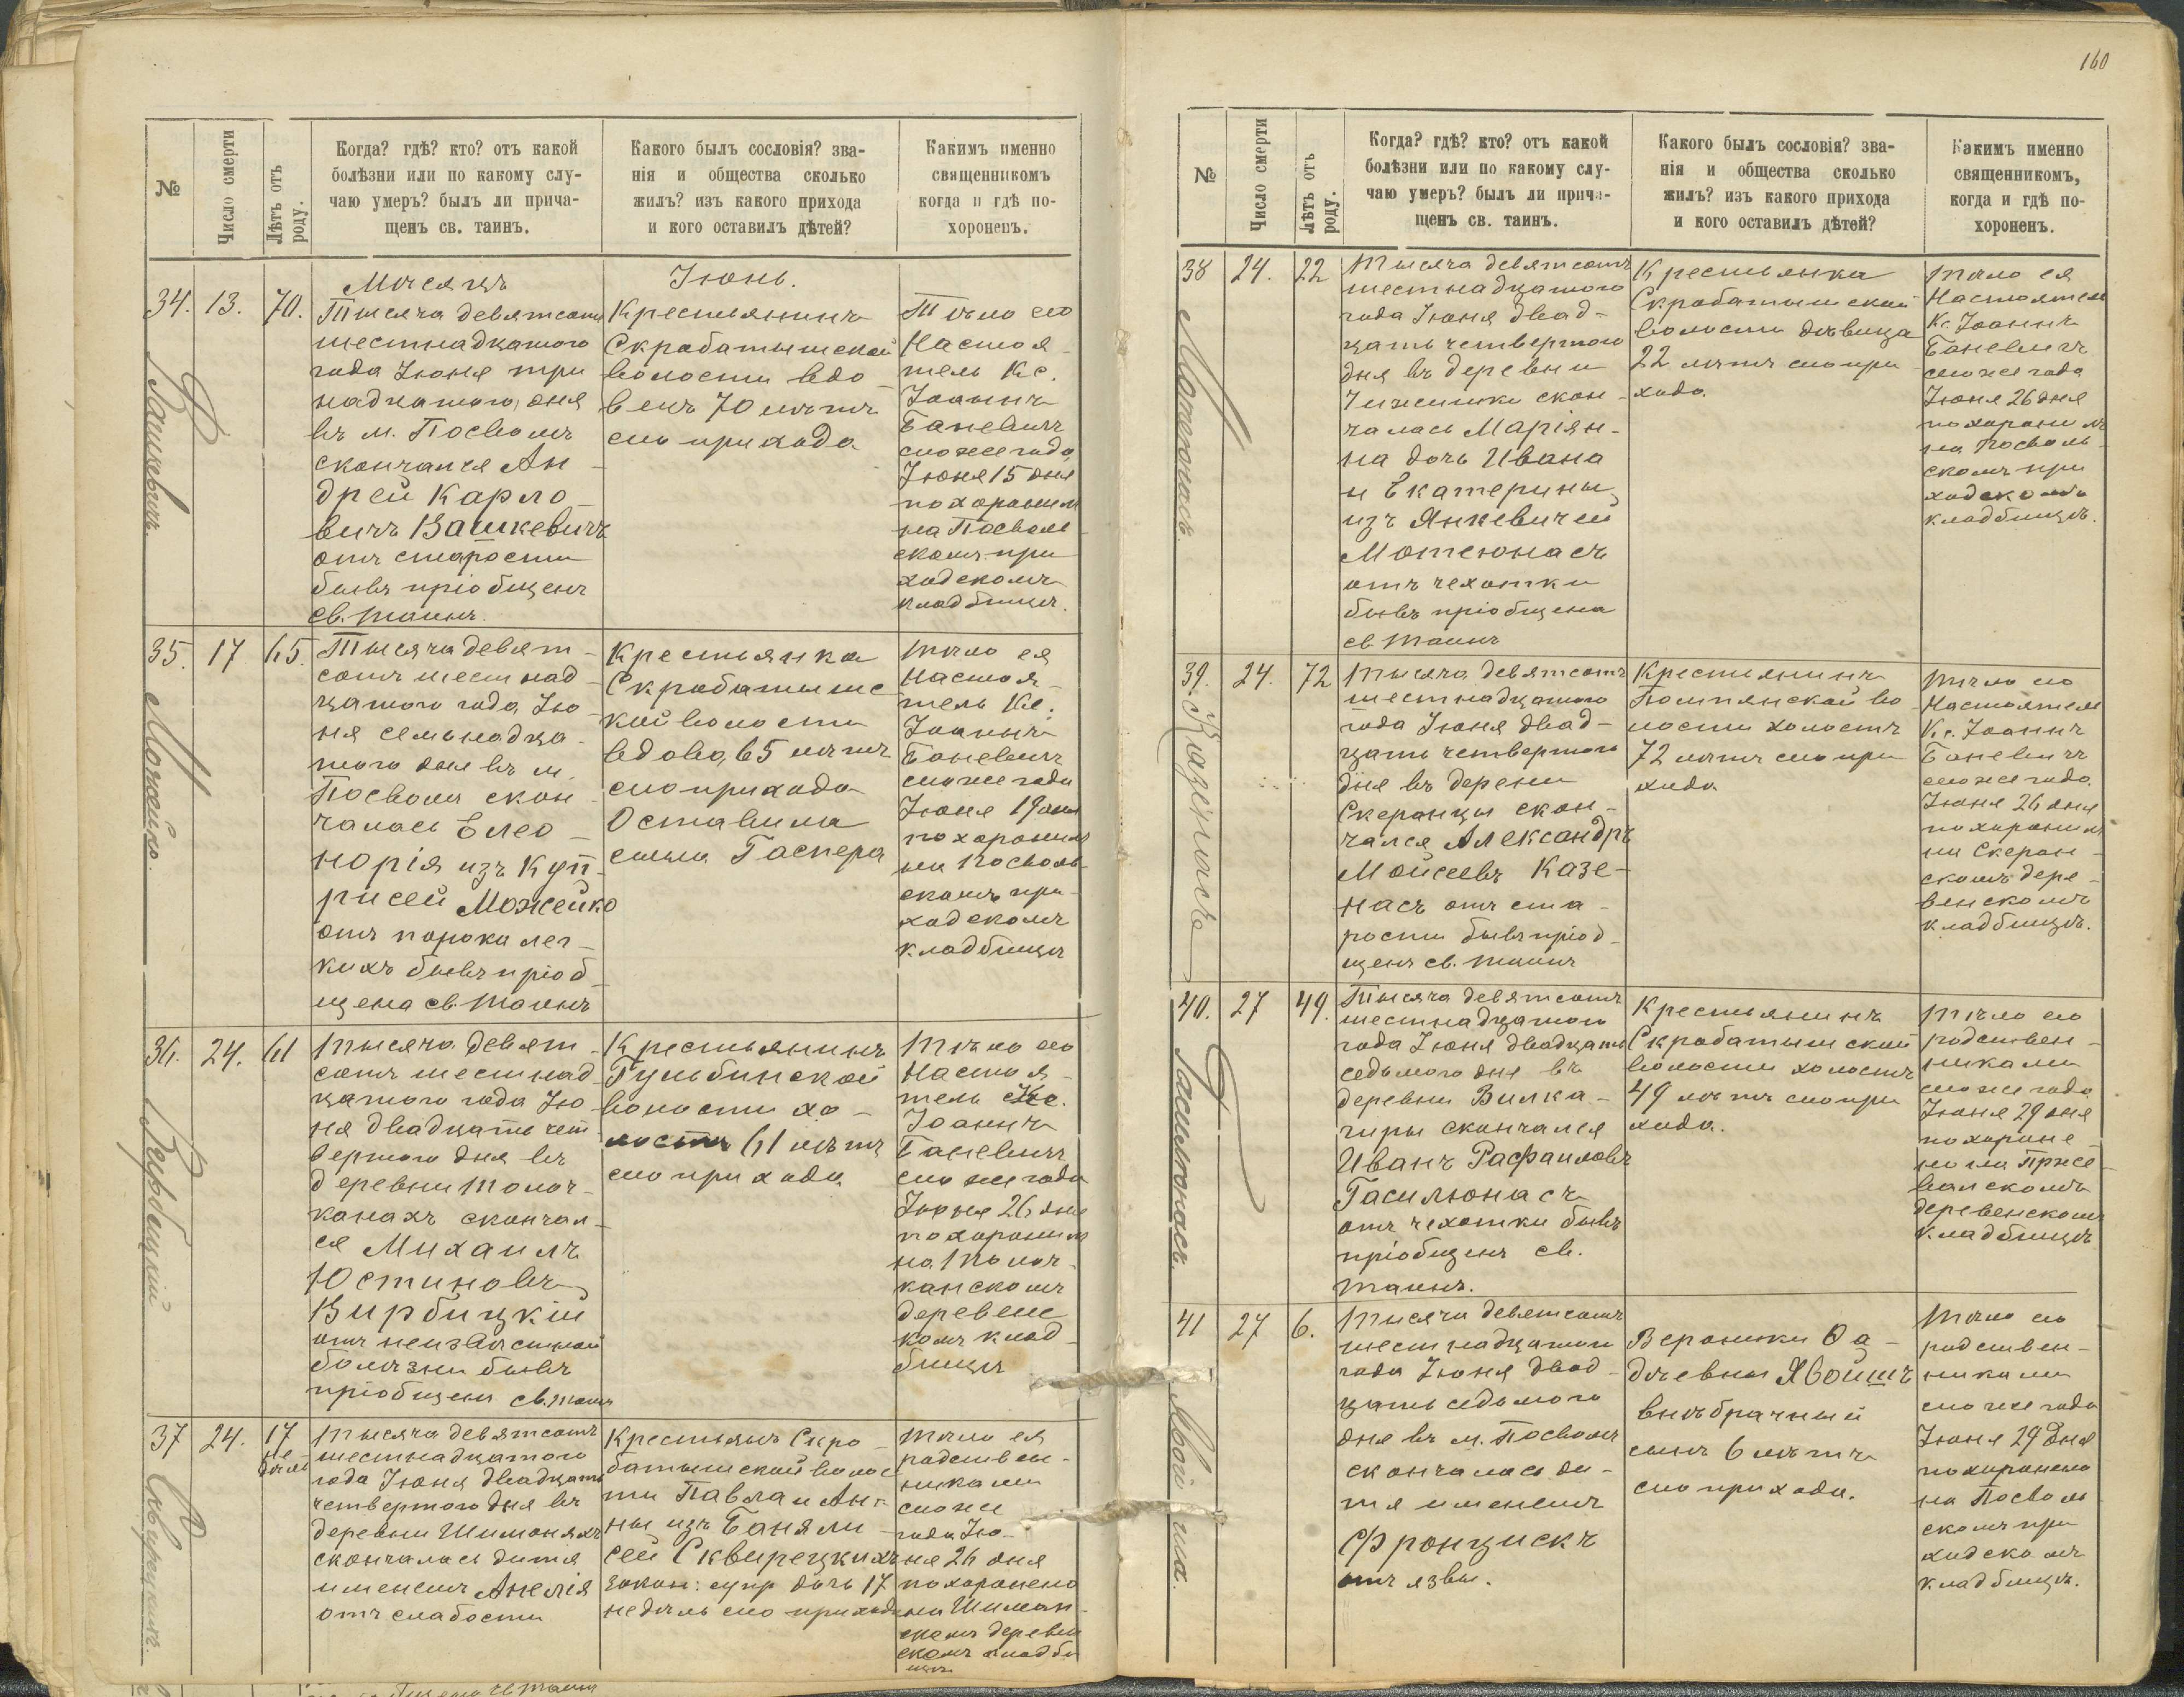 160
№
Число смерти
Лѣтъ отъ роду.
Когда? гдѣ? кто? отъ какой
болѣзни или по какому слу-
чаю умеръ? былъ ли прича-
щенъ св. таинъ.
Какого былъ сословія? зва-
нія и общества сколько
жилъ? изъ какого прихода
и кого оставилъ дѣтей?
Какимъ именно
священникомъ
когда и гдѣ по-
хороненъ.
Мѣсяцъ
Іюнь.
34.
13.
70.
Вашкевичъ.
Тысяча девятсотъ
шестнадцатого
года Іюня три
надцатого дня
въ м. Посволѣ
скончался Ан-
дрей Карло-
вичъ Вашкевичъ
отъ старости
бывъ пріобщенъ
св. таинъ.
Крестьянинъ
Скробатышской
волости вдо-
вецъ 70 лѣтъ
сего прихода
Тѣло его
Настоя-
тель Кс.
Іоаннъ
Баневичъ
сего же года
Іюня 15 дня
похоронилъ
на Посволь-
скомъ при-
ходскомъ
кладбищѣ.
35.
17
65.
Можейко.
Тысяча девят-
сотъ шестнад-
цатого года Ію-
ня семьнадца-
того дня въ м.
Посволѣ скон-
чалась Елео-
норія изъ Куп-
рисей Можейко
отъ порока лег-
кихъ бывъ пріоб-
щена св. таинъ
Крестьянка
Скробатышс-
кой волости
вдова 65 лѣтъ
сего прихода
Оставила
сына Гаспера
Тѣло ея
Настоя-
тель Кс.
Іоаннъ
Баневичъ
сего же года
Іюня 19 дня
похоронилъ
на Посволь-
скомъ при-
ходскомъ
кладбищѣ
36.
24.
61
Вирбицкій
Тысяча девят-
сотъ шестнад-
цатого года Ію-
ня двадцать чет-
вертого дня въ
деревни Толоч-
канахъ скончал-
ся Михаилъ
Юстиновъ
Вирбицкій
отъ неизвѣстной
болѣзни бывъ
пріобщенъ св. таинъ
Крестьянинъ
Гульбинской
волости хо-
лостъ 61 лѣтъ
сего прихода
Тѣло его
Настоя-
тель Кс.
Іоаннъ
Баневичъ
сего же года
Іюня 26 дня
похоронилъ
на Толоч-
канскомъ
деревенс
комъ клад-
бищѣ
37
24.
17
не-
дѣль
Сквирецкихъ.
Тысяча девятсотъ
шестнадцатого
года Іюня двадцать
четвертого дня въ
деревни Шимоняхъ
скончалась дитя
именемъ Анелія
отъ слабости
Крестьянъ Скро-
батышской волос
ти Павла и Ан-
ны изъ Баняли-
сей Сквирецкихъ
закон: супр дочь 17
недѣль сего прихода
Тѣло ея
родствен-
никами
сего же
года Ію-
ня 26 дня
похоронено
на Шиман-
скомъ деревен
скомъ кладби
щѣ
№
Число смерти
Лѣтъ отъ роду.
Когда? гдѣ? кто? отъ какой
болѣзни или по какому слу-
чаю умеръ? былъ ли прича-
щенъ св. таинъ.
Какого былъ сословія? зва-
нія и общества сколько
жилъ? изъ какого прихода
и кого оставилъ дѣтей?
Какимъ именно
священникомъ,
когда и гдѣ по-
хороненъ.
38
24.
22
Мотеюнасъ
Тысяча девятсотъ
шестнадцатого
года Іюня двад-
цать четвертого
дня въ деревни
скон-
чалась Маріян-
на дочь Ивана
и Екатерины
изъ Янкевичей
Мотеюнасъ
отъ чехотки
бывъ пріобщена
св таинъ
Крестьянка
Скробатышской
волости дѣвица
22 лѣтъ сего при-
хода.
Тѣло ея
Настоятель
Кс. Іоаннъ
Баневичъ
сего же года
Іюня 26 дня
похоронилъ
на Посволь-
скомъ при
ходскомъ
кладбищѣ.
39.
24.
72
Казенасъ
Тысяча девятсотъ
шестнадцатого
года Іюня двад-
цать четвертого
дня въ дерени
Скеранцы скон-
чался Александръ
Мойсеевъ Казе-
насъ отъ ста-
рости бывъ пріод-
щенъ св. таинъ
Крестьянинъ
Помпянской во
лости холостъ
72 лѣтъ сего при
хода
Тѣло его
Настоятель
Кс. Іоаннъ
Баневичъ
сего же года.
Іюня 26 дня
похоронилъ
на Скеран-
скомъ дере-
венскомъ
кладбищѣ.
40.
27
49.
Гасилюнасъ.
Тысяча девятсотъ
шестнадцатого
года Іюня двадцать
седьмого дня въ
деревни Вилка-
чиры скончался
Иванъ Рафаиловъ
Гасилюнасъ
отъ чехотки бывъ
пріобщенъ св.
таинъ.
Крестьянинъ
Скробатышской
волости холостъ
49 лѣтъ сего при
хода.
Тѣло его
родствен-
никами
сего же года
Іюня 29 дня
похороне-
но на
деревенскомъ
кладбищѣ
41
27
6.
Тысяча девятсотъ
шестнадцатого
года Іюня двад-
цать седьмого
дня въ м. Посволѣ
скончалась ди-
тя именемъ
Францискъ
отъ язвы.
Вероники Ѳа-
дѣевны Явойшъ
внѣбрачный
сынъ 6 лѣтъ
сего прихода.
Тѣло его
родствен-
никами
сего же года
Іюня 29 дня
похоронено
на Посволь
скомъ при
ходскомъ
кладбищѣ.